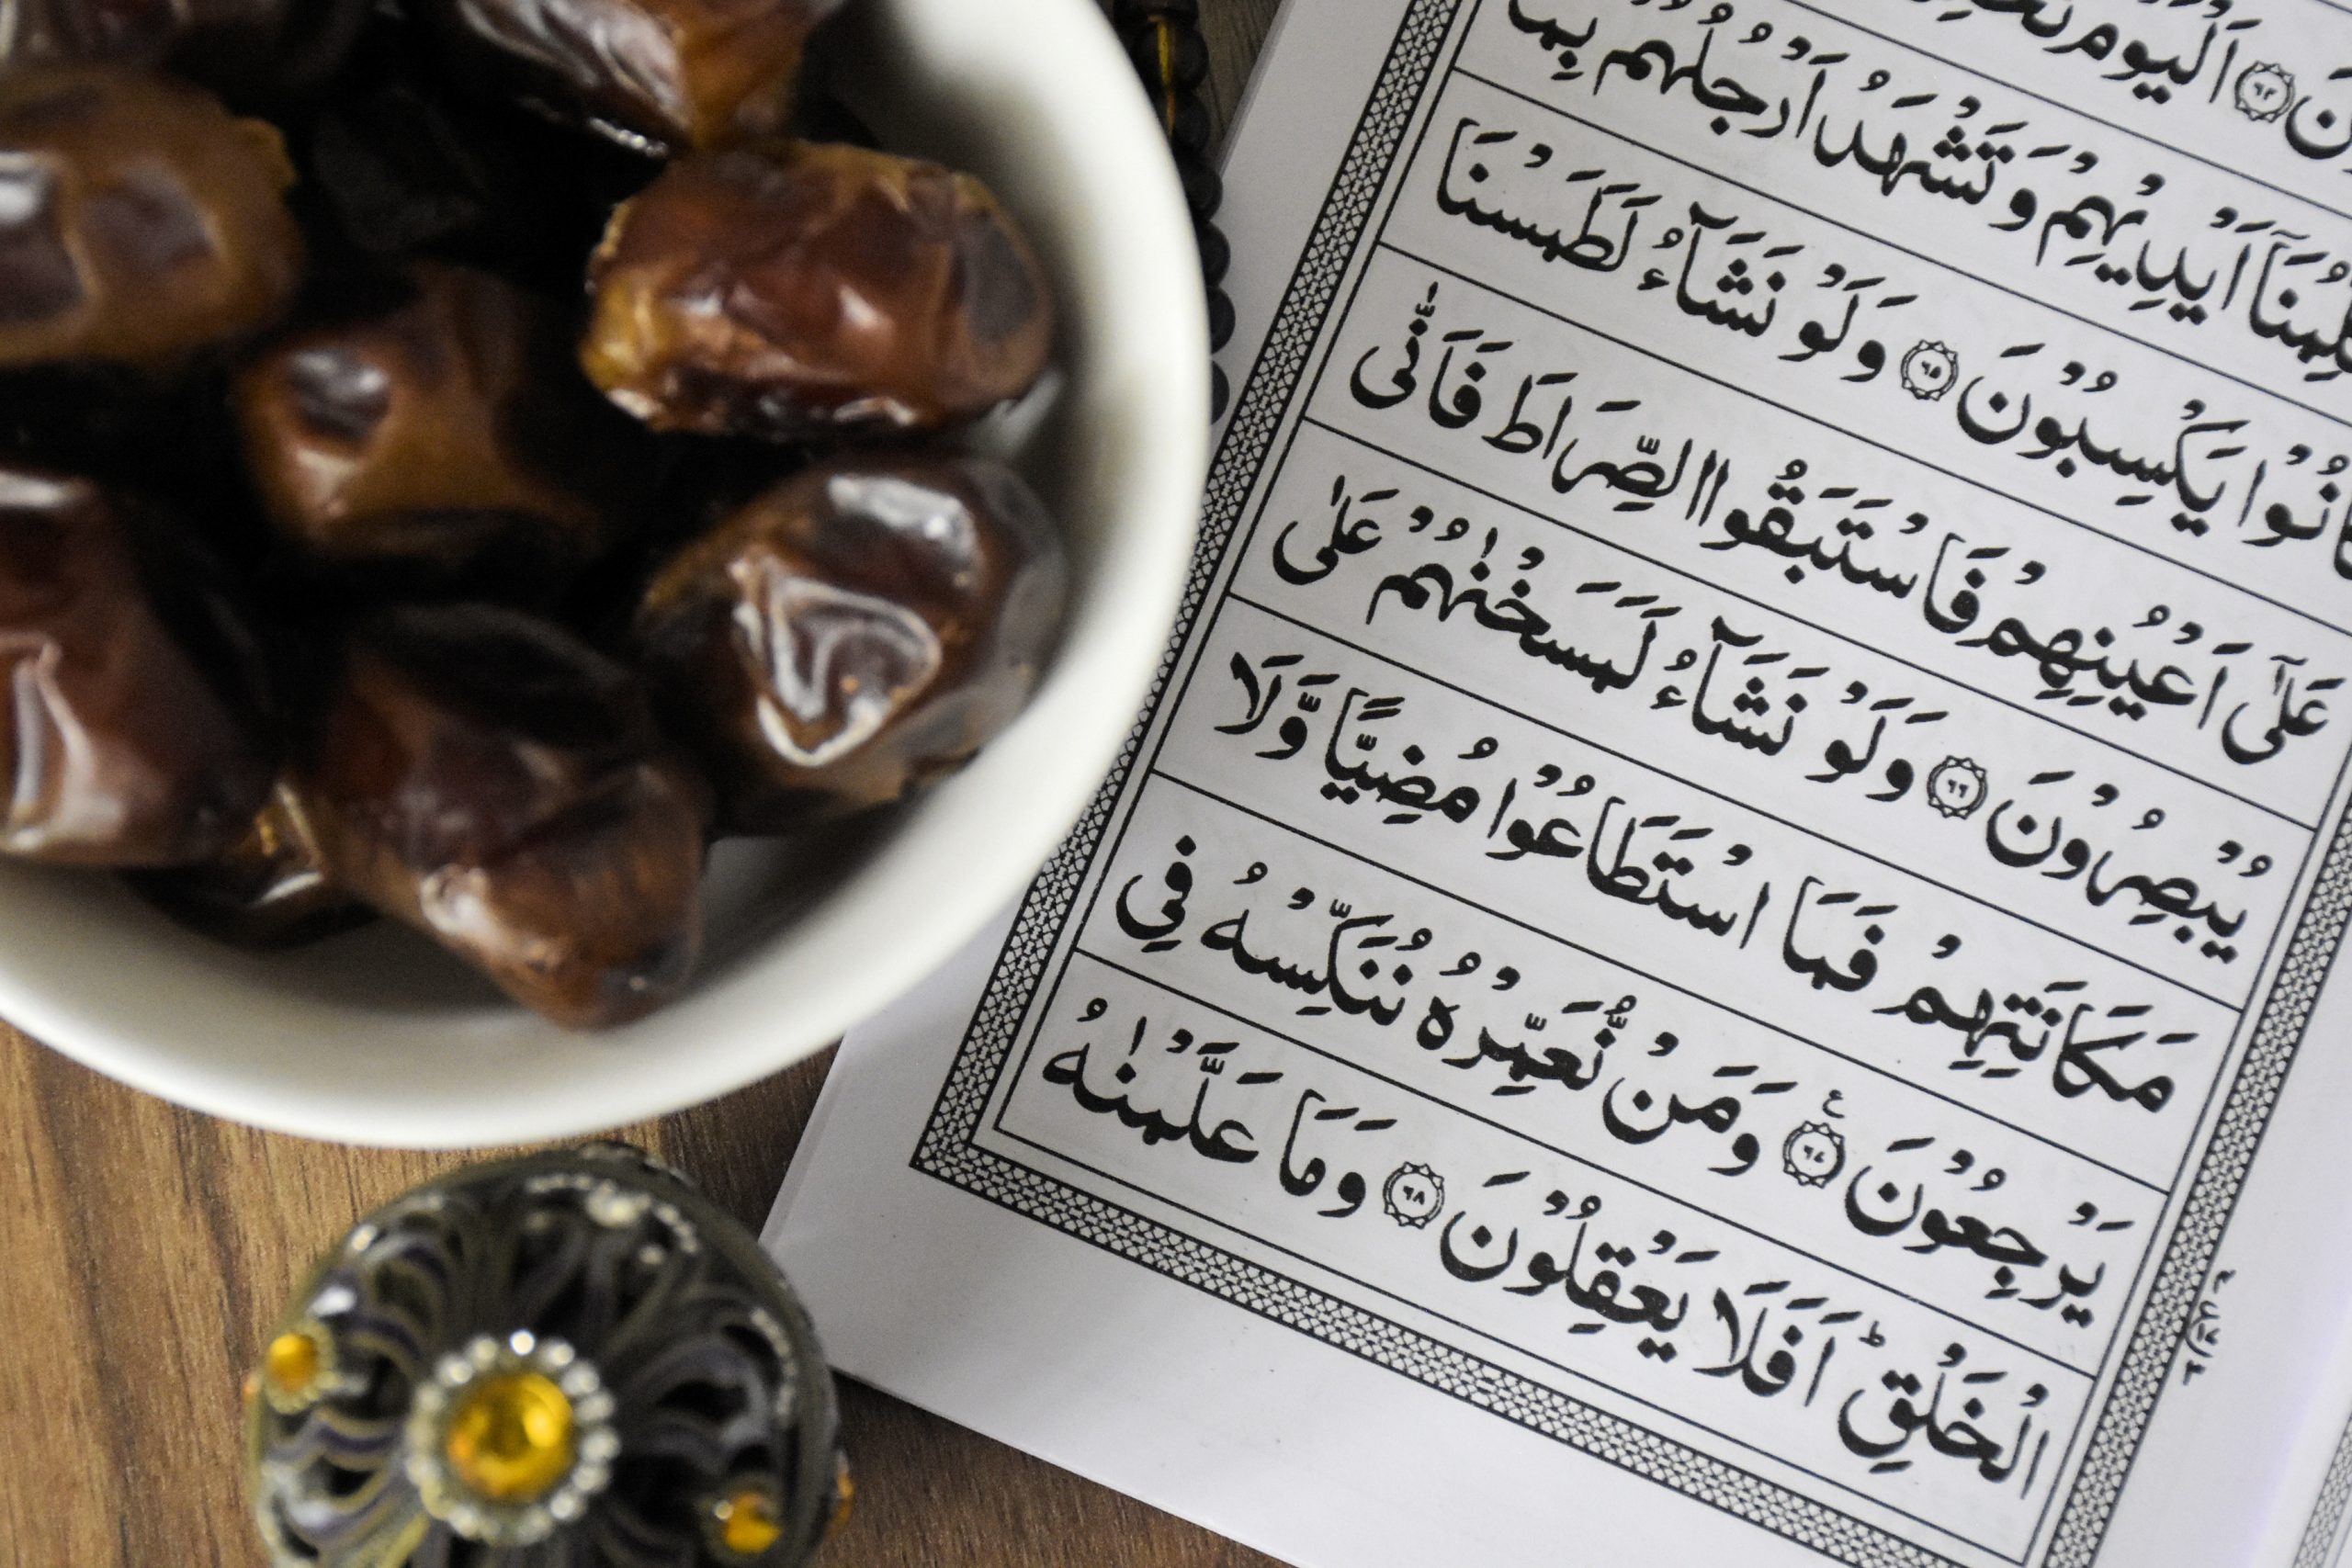 اَلْيَوْمَ ﴿٦٣﴾
اَيْدِيْهِمْ وَتَشْهَدُ اَرْجُلُهُمْ بِمَا
يَكْسِبُوْنَ ﴿٦٥﴾ وَلَوْ نَشَآءُ لَطَمَسْنَا
عَلٰٓى اَعْيُنِهِمْ فَاسْتَبَقُوا الصِّرَاطَ فَاَنّٰى
يُبْصِرُوْنَ ﴿٦٦﴾ وَلَوْ نَشَآءُ لَمَسَخْنٰهُمْ عَلٰى
مَكَانَتِهِمْ فَمَا اسْتَطَاعُوْا مُضِيًّا وَّلَا
يَرْجِعُوْنَ ﴿٦٧﴾ ع وَمَنْ نُّعَمِّرْهُ نُنَكِّسْهُ فِي
الْخَلْقِ ؕ اَفَلَا يَعْقِلُوْنَ ﴿٦٨﴾ وَمَا عَلَّمْنٰهُ